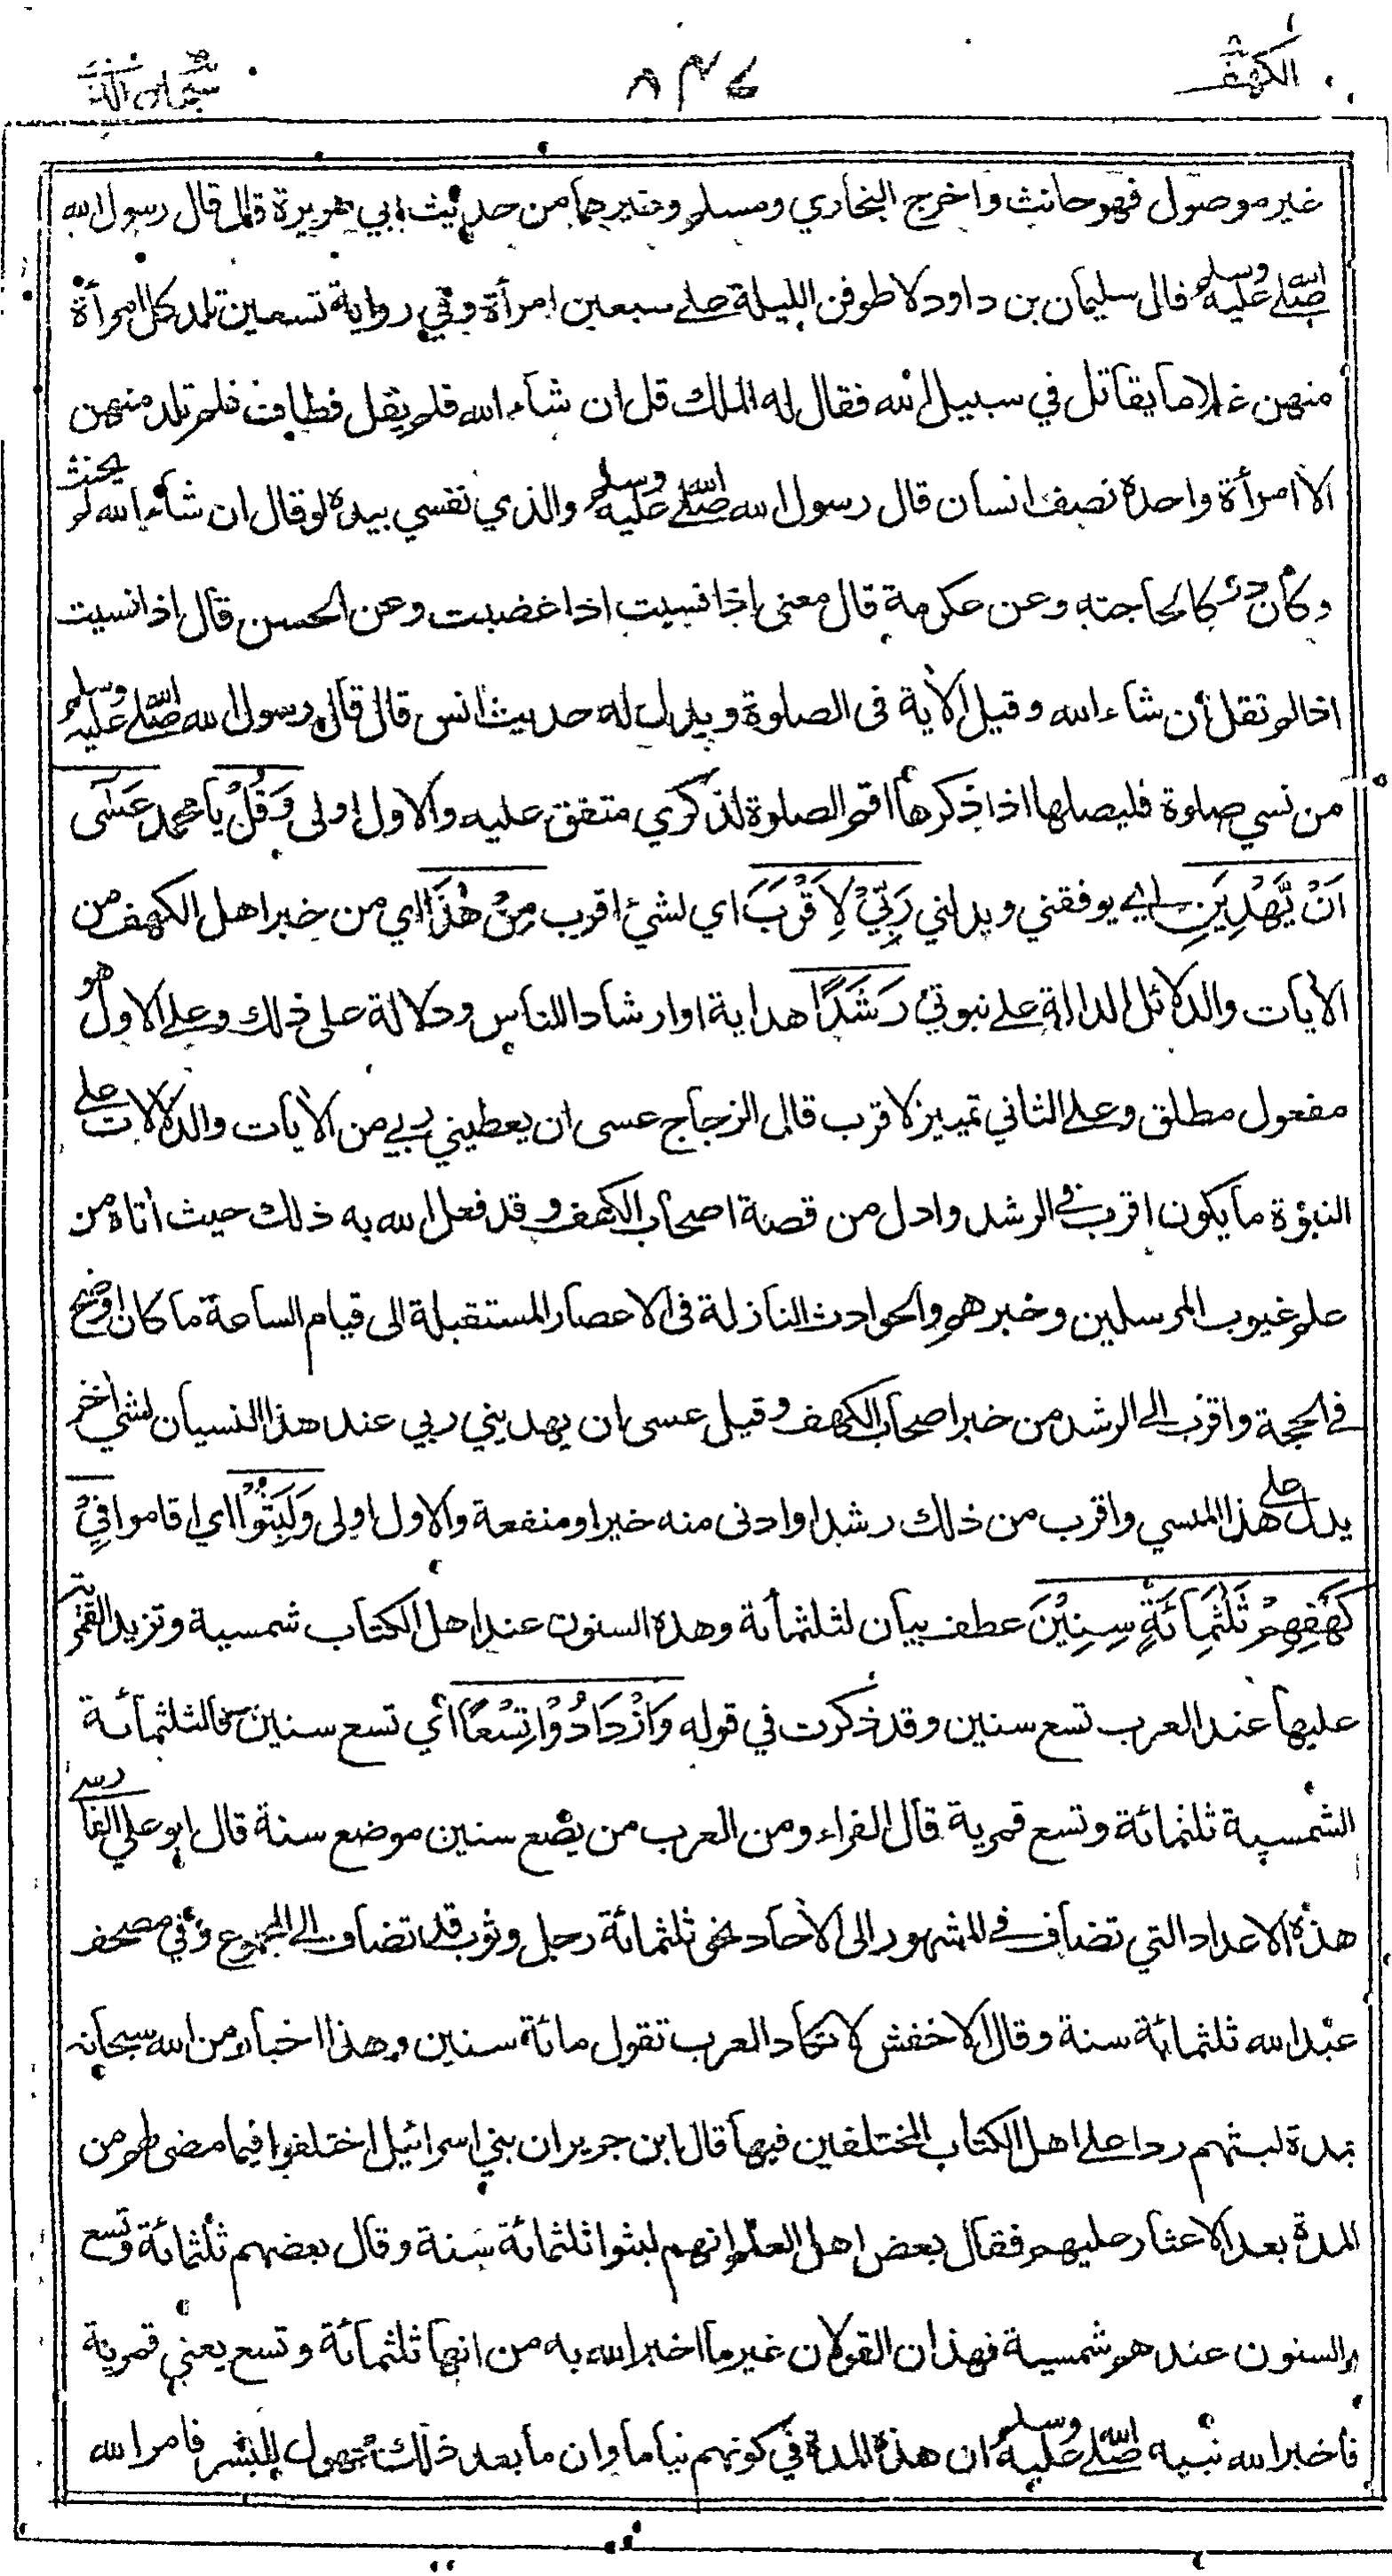 الكهف ٨٣٧ سبحان الذى
غير موصول فهو حانث واخرج البخاري ومسلم وغيرهما من حديث ابي هريرة قال قال رسول الله
صلى الله عليه وسلم قال سليمان بن داود لاطوفن الليلة على سبعين امرأة وفي رواية تسعين تلد كل امرأة
منهن غلاما يقاتل في سبيل الله فقال له الملك قل ان شاء الله فلم يقل فطاف فلم تلد منهن
الا امرأة واحدة نصف انسان قال رسول الله صلى الله عليه وسلم والذي نفسي بيده لو قال ان شاء الله لم يحنث
وكان دركا لحاجته وعن عكرمة قال معنى اذا نسيت اذا غضبت وعن الحسن قال اذا نسيت
اذا لم تقل ان شاء الله وقيل الأية فى الصلوة ويدل له حديث انس قال قال رسول الله صلى الله عليه وسلم
من نسي صلوة فليصلها اذا ذكرها اقم الصلوة لذكري متفق عليه والاول اولى وَقُلْ يا محمد عَسَى
اَنْ يَّهْدِيَنِ اي يوفقني ويدلني رَبِّيْ لِاَقْرَبَ اي لشئ اقرب مِنْ هٰذَا اي من خبر اهل الكهف من
الأيات والدلائل الدالة على نبوتي رَشَدًا هداية او ارشادا للناس ودلالة على ذلك وعلى الاول هو
مفعول مطلق وعلى الثاني تمييز لاقرب قال الزجاج عسى ان يعطيني ربي من الأيات والدلالات على
النبؤة ما يكون اقرب فى الرشد وادل من قصة اصحاب الكهف وقد فعل الله به ذلك حيث اتاه من
علم غيوب المرسلين وخبرهم والحوادث النازلة فى الاعصار المستقبلة الى قيام الساعة ما كان اوضح
في الحجة واقرب الى الرشد من خبر اصحاب الكهف وقيل عسى ان يهديني ربي عند هذا النسيان لشئ اخر
يدل على هذا المنسي واقرب من ذلك رشدا وادنى منه خيرا ومنفعة والاول اولى وَلَبِثُوْا اي اقاموا فِيْ
كَهْفِهِمْ ثَلٰثَمِائَةٍ سِنِيْنَ عطف بيان لثلثمائة وهذه السنون عند اهل الكتاب شمسية وتزيد القمرية
عليها عند العرب تسع سنين وقد ذكرت في قوله وَازْدَادُوْا تِسْعًا اي تسع سنين فالثلثمائة
الشمسية ثلثمائة وتسع قمرية قال الفراء ومن العرب من يضع سنين موضع سنة قال ابو علي الفارسي
هذه الاعداد التي تضاف في المشهور الى الأحاد نحو ثلثمائة رجل وثوب قد تضاف الى المجموع وفي مصحف
عبد الله ثلثمائة سنة وقال الاخفش لا تكاد العرب تقول مائة سنين وهذا اخبار من الله سبحانه
بمدة لبثهم ردا على اهل الكتاب المختلفين فيها قال ابن جرير ان بني اسرائيل اختلفوا فيما مضى لهم من
المدة بعد الاعثار عليهم فقال بعض اهل العلم انهم لبثوا ثلثمائة سنة وقال بعضهم ثلثمائة وتسع
والسنون عندهم شمسية فهذان القولان غير ما اخبر الله به من انها ثلثمائة وتسع يعني قمرية
فأخبر الله نبيه صلى الله عليه وسلم ان هذه المدة في كونهم نياما وان ما بعد ذلك مجهول للبشر فامر الله